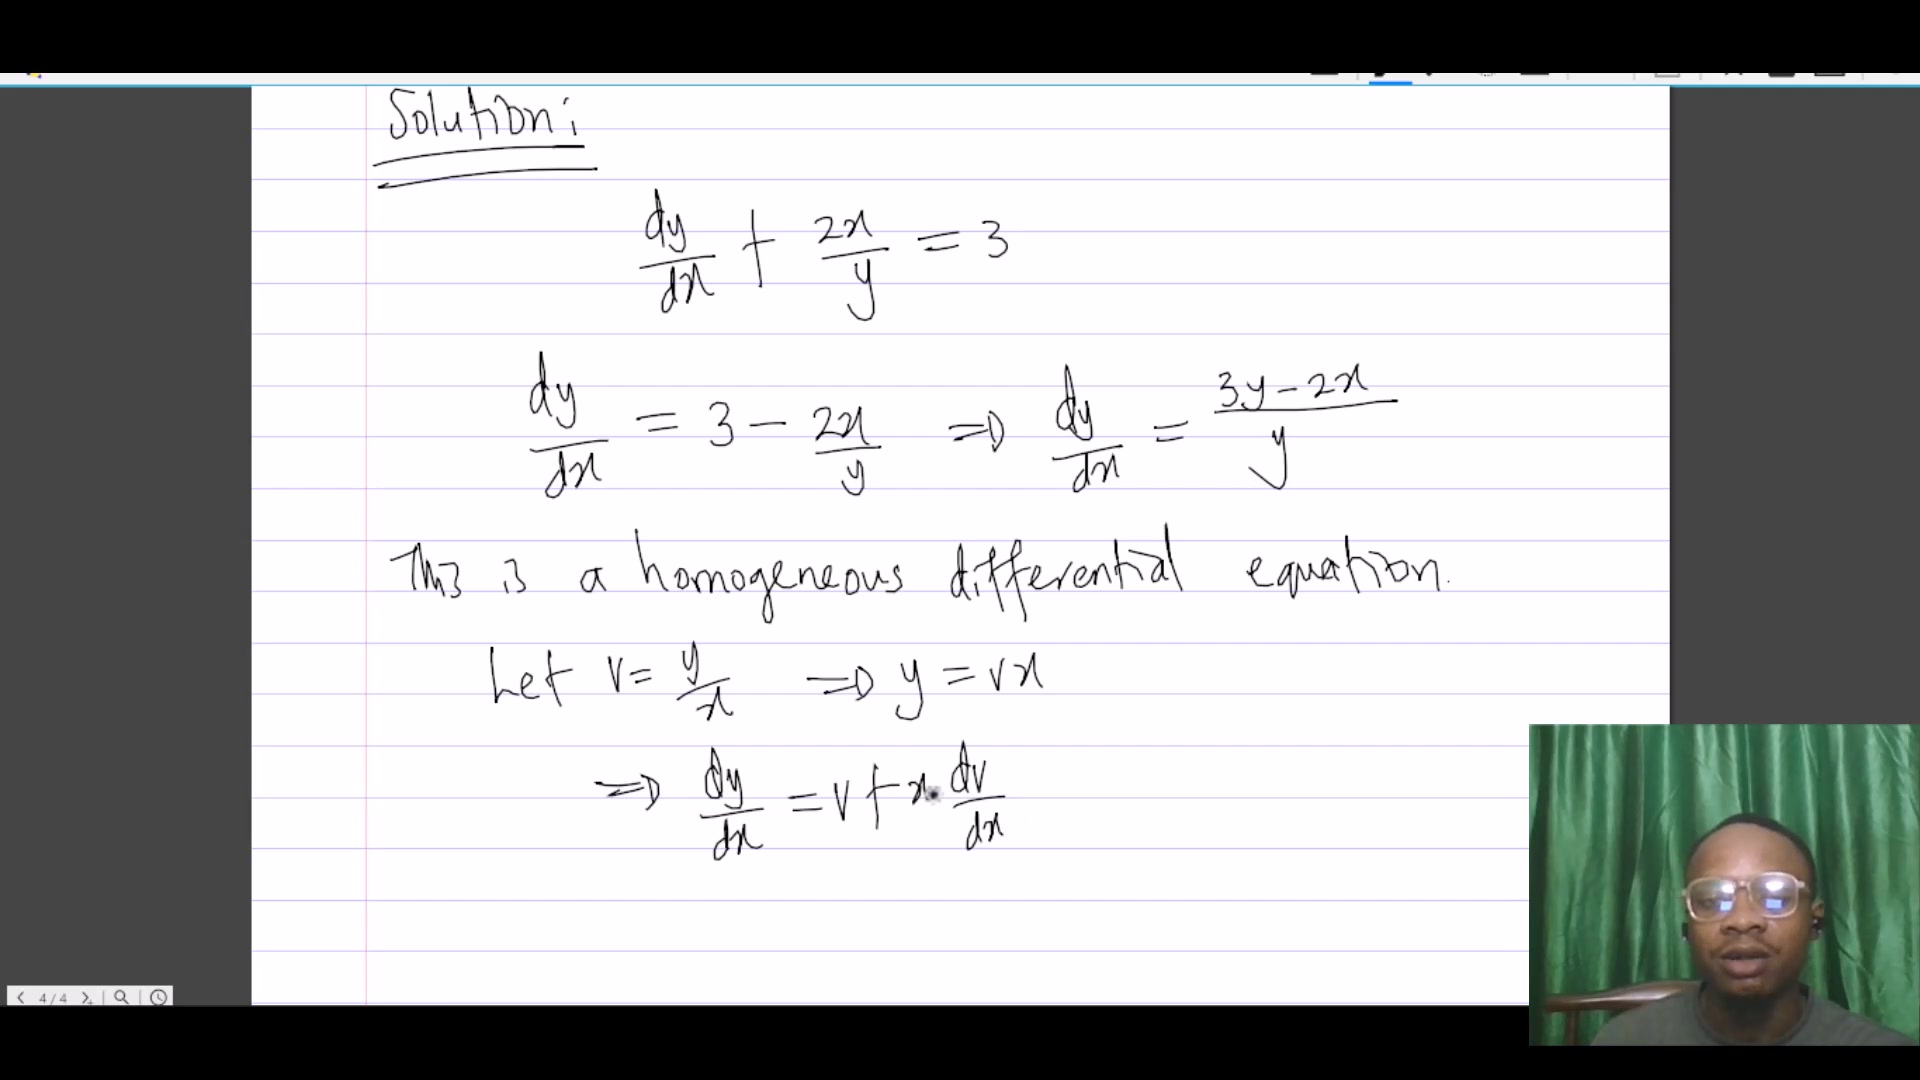 Solution:
dy/dx + 2x/y = 3
dy/dx = 3 - 2x/y ⇒ dy/dx = (3y - 2x)/y
This is a homogeneous differential equation.
Let v = y/x ⇒ y = vx
⇒ dy/dx = v + x dv/dx
4 / 4